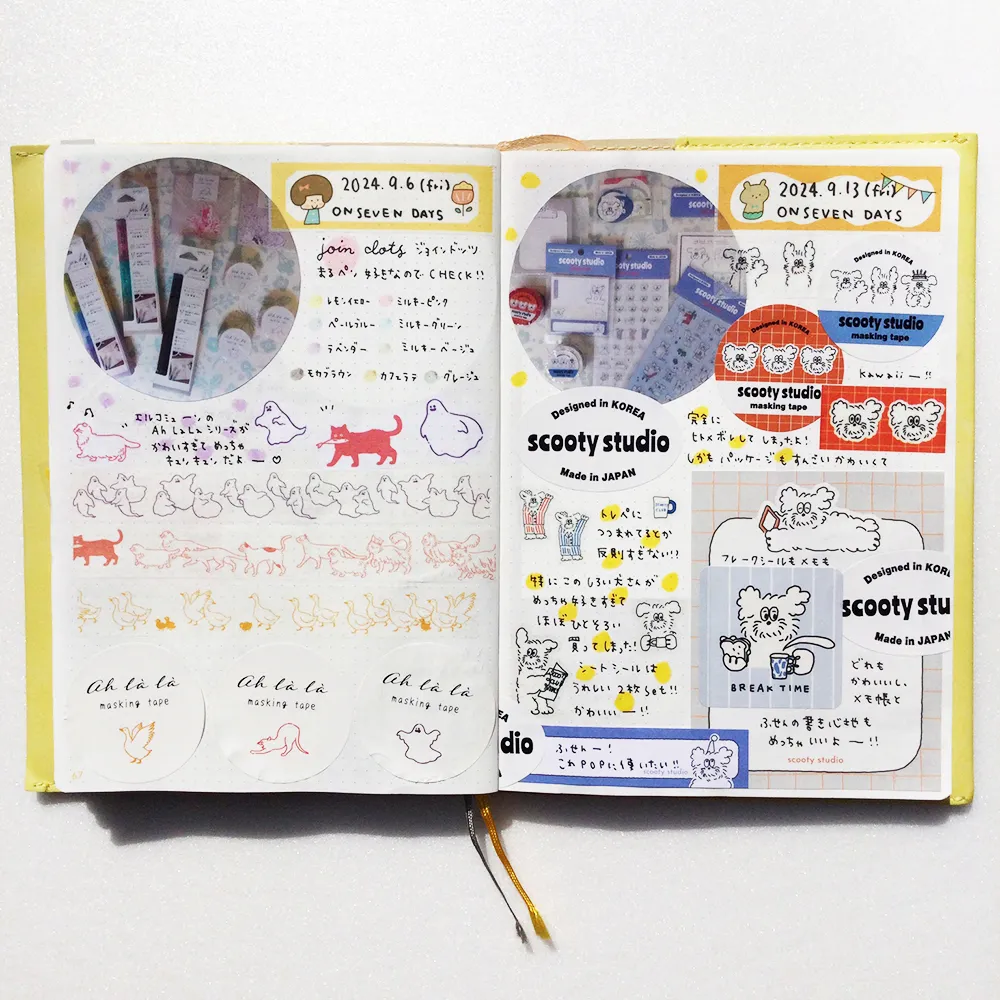 2024.9.6(fri)
ON SEVEN DAYS
join dots ジョインドッツ
まるペン 好きなので CHECK!!
レモンイエロー ミルキーピンク
ペールブルー ミルキーグリーン
ラベンダー ミルキーベージュ
モカブラウン カフェラテ グレージュ
エルコミューンの
Ah LaLa シリーズが
かわいすぎて めっちゃ
キュンキュンだよー♡
Ah là là
masking tape
Ah là là
masking tape
Ah là là
masking tape
67
2024.9.13(fri)
ON SEVEN DAYS
scooty studio
scooty studio
scooty studio
Designed in KOREA
scooty studio
masking tape
Designed in KOREA
scooty studio
masking tape
kawaii—!!
完全に
ヒトメボレして しまったよ!
しかも パッケージも すんごい かわいくて
Designed in KOREA
scooty studio
Made in JAPAN
トレペに
つつまれてるとか
反則すぎない!?
特に この しろい犬さんが
めっちゃ 好きすぎて
ほぼ ひとそろい
買って しまった!
シートシールは
うれしい 2枚set!!
かわいいー!!
フレークシールも メモも
Designed in KOR
scooty stu
Made in JAPAN
BREAK TIME
どれも
かわいいし、
メモ帳と
ふせんの 書き心地も
めっちゃいいよー!!
scooty studio
EA
dio
N
ふせんー!
これPOPに 使いたい!!
scooty studio